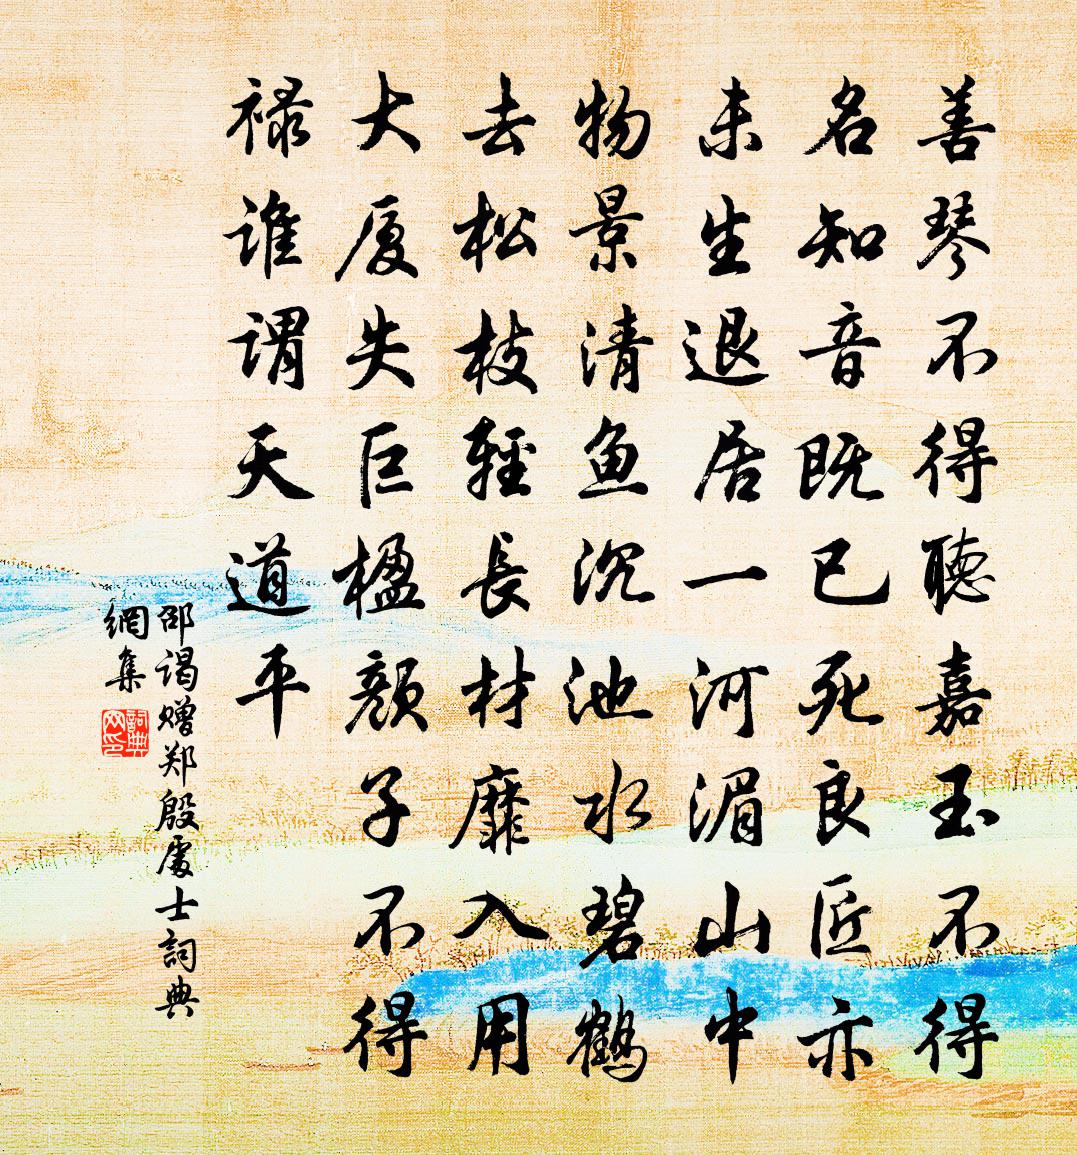 善琴不得聽嘉玉不得
名知音既已死良匠亦
未生退居一河湄山中
物景清魚沉池水碧鶴
去松枝輕長材靡入用
大厦失巨楹顏子不得
禄誰謂天道平
邵谒赠郑殷處士詞典
網集
詞典